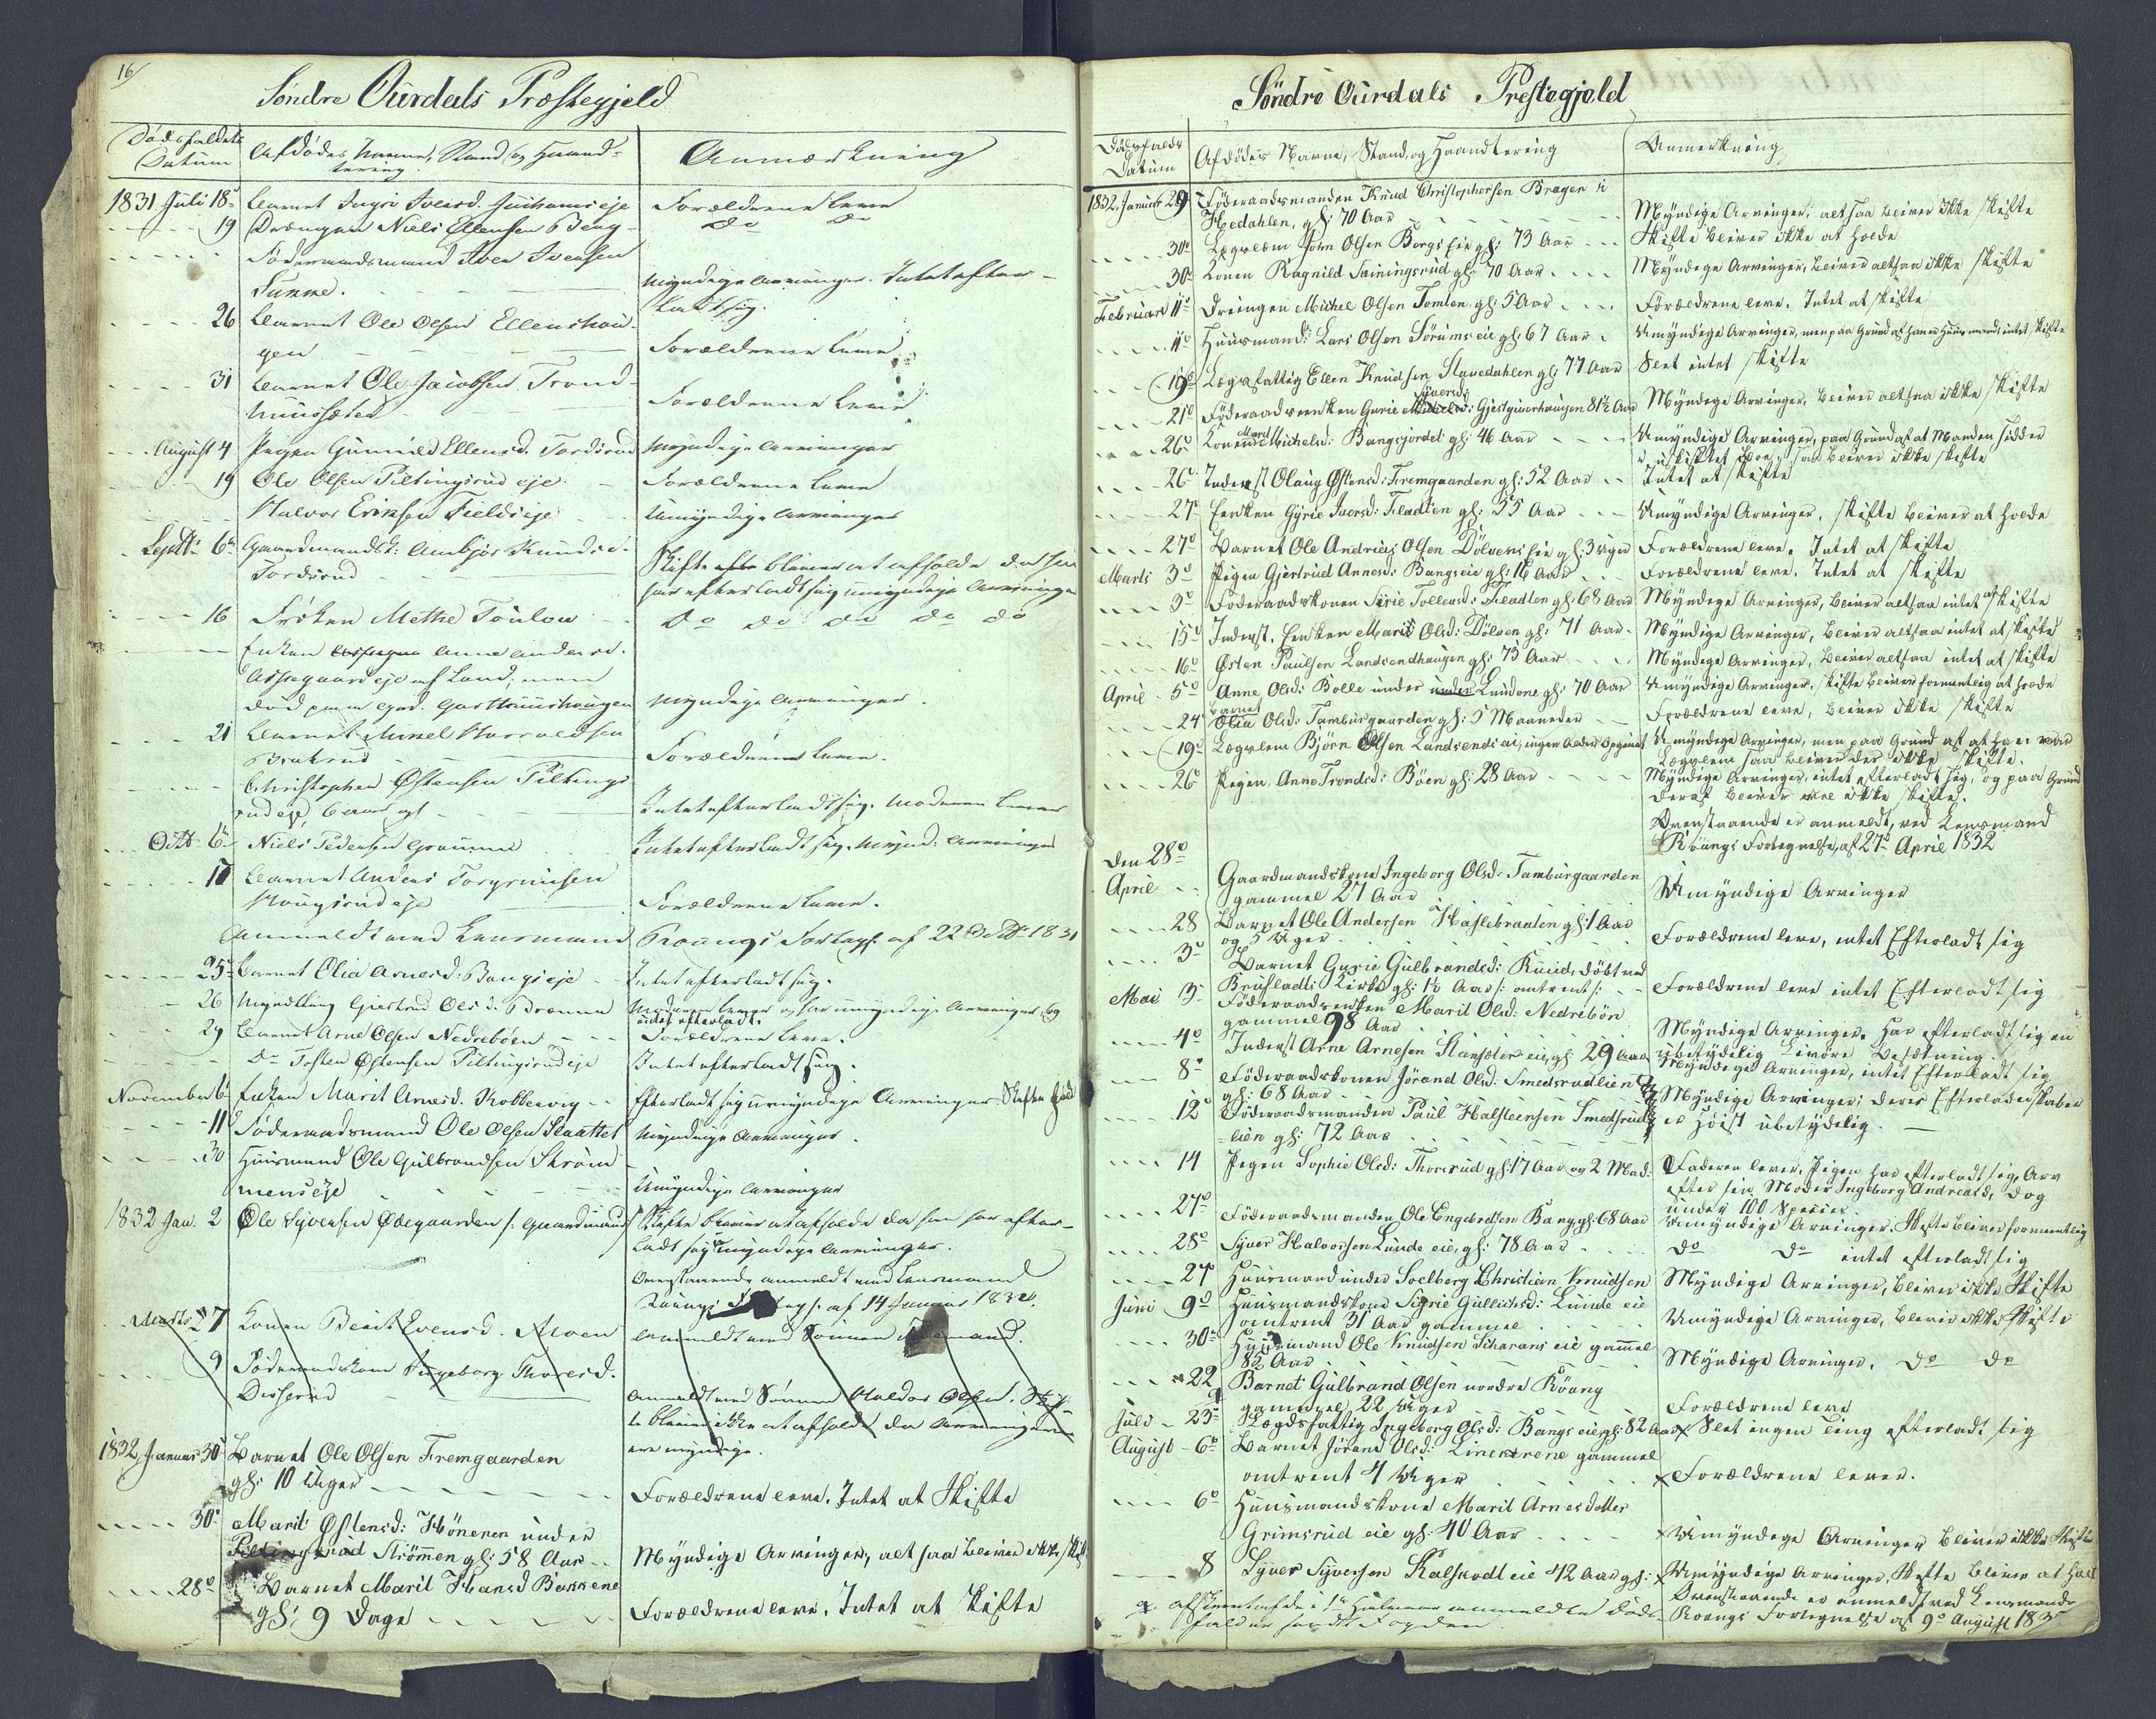 16/
Søndre Ourdals Præstegjeld
Dødsfaldets Datum
Afdødes Navne, Stand og Haandtering.
Anmærkning
1831 Juli 18de Barnet Ingri Iversd. eje Forældrene leve
19 Drængen Niels Ellensen Bang Do Do
Føderaadsmand Iver Iversen
Sunne. Myndige Arvinger. Intet efter-
ladt sig.
26 Barnet Ole Olsen Ellenshau-
gen Forældrene leve
31 Barnet Ole Jacobsen Trond-
huussæter Forældrene leve
August 4 Pigen Gunnild Ellensd. Tordsrud Myndige Arvinger
19 Ole Olsen Piltingsrud eje Forældrene leve
Halvor Eriksen Fieldseje Umyndige Arvinger
Septbr 6te Gaardmandsk: Ambjør Knudsd.
Tordsrud Skifte bliver at afholde da hun
har efterladt sig umyndige Arvinger
16 Frøken Methe Toulow Do Do Do Do Do
Enken Anne Andersd.
Aslagaard eje af Land; men
død paa Myndige Arvinger.
21 Barnet Mikkel Haraldsen
Brakrud Forældrene leve.
Christopher Østensen Piltings-
rud eje, 6 aar gl Intet efterladt sig. Moderen lever
Octbr 6te Niels Pedersen Intet efterladt sig. Mynd: Arvinger
17 Barnet Anders Torgrimsen
Hougsrud eje Forældrene leve.
Anmeldt med Lensmand Røangs Fortegn. af 22de Octbr 1831
25de Barnet Olia Arnesd: Bangs eje Intet efterladt sig.
26 Myndling Giertrud Olsd. Brænna Moderen lever og har umyndige Arvinger og
intet efterladt.
29 Barnet Arne Olsen Nedrebøen Forældrene leve.
Do Tosten Østensen Piltingsrud eje Intet efterladt sig.
November 6te Enken Marit Arnesd. Kobbervig Efterladt sig umyndige Arvinger Skiftet holdt
11 Føderaadsmand Ole Olsen Slaattet Myndige Arvinger.
30 Huusmand Ole Gulbrandsen Strøm-
mens eje Umyndige Arvinger
1832 Jan. 2 Ole Syversen Ødegaarden /: Gaardmand Skifte bliver at afholde da han har efter-
ladt sig umyndige Arvinger.
Ovenstaaende anmeldt med Lensmand
Røangs af 14 Januar 1832.
Marts 27 Konen Berit Evensd. Anmeldt ved Sønnen
9 Føderaadskone Ingeborg Thoresd.
Disserud Anmeldt ved Sønnen Haldor Olsen. Skif-
te bliver ikke at afholde da Arvingerne
ere myndige.
1832 Januar 30te Barnet Ole Olsen Fremgaarden
gl: 10 Uger Forældrene leve. Intet at Skifte
30te Marit Østensd: Hønenen under
Strømmen gl: 58 Aar Myndige Arvinger, altsaa bliver ikke Skifte
28de Barnet Marit Hansd Bakkene
gl: 9 Dage Forældrene leve. Intet at Skifte
Søndre Ourdals Prestegjeld
Dødsfalds Datum
Afdødes Navne, Stand og Haandtering
Anmerkning
1832, Januar 29 Føderaadsmanden Knud Christophersen Bragen i
Hedahlen, gl: 70 Aar Myndige Arvinger, altsaa bliver ikke skifte
30te Lægslem John Olsen Bergs eie gl: 73 Aar Skifte bliver ikke at holde
30te Konen Ragnild gl: 70 Aar Myndige Arvinger, bliver altsaa ikke skifte
Februari 11te Drengen Michel Olsen Tomten gl: 5 Aar Forældrene leve. Intet at skifte
11te Huusmand: Lars Olsen Sørums eie gl: 67 Aar Umyndige Arvinger, men paa Grund af han er Huusmand, intet skifte
19de Lægsfattig Ellen Knudsen Stavedahlen gl: 77 Aar Slet intet skifte
21de Føderaadsenken Gurie Syversd: Gjestgiverhaugen 81½ Aar Myndige Arvinger, bliver altsaa ikke skifte
26de Konen Marit Michelsd: Bangsjordet gl: 46 Aar Umyndige Arvinger, paa Grund af at Manden sidder
i uskiftet Boe, saa bliver ikke skifte
26de Inderst Olaug Østensd: Fremgaarden gl: 52 Aar Intet at skifte
27de Enken Gyrie Iversd: Fladten gl: 55 Aar Umyndige Arvinger, skifte bliver at holde
27de Barnet Ole Andreas Olsen Dølvens eie gl: 3 Uger Forældrene leve. Intet at skifte
Marts 3de Pigen Gjertrud Annesd: Bangs eie gl: 16 Aar Forældrene leve. Intet at skifte
3de Føderaadskonen Sirie Tollevsd: Fladten gl: 68 Aar Myndige Arvinger, bliver altsaa intet at skifte
15de Inderst. Enken Marit Olsd: Dølven gl: 71 Aar Myndige Arvinger, bliver altsaa intet at skifte
16de Østen Paulsen Landsendhaugen gl: 73 Aar Myndige Arvinger, bliver altsaa intet at skifte
April 5te Anne Olsd: Bolle under Lundene gl: 70 Aar Umyndige Arvinger, skifte bliver formentlig at holde
24 Barnet Olia Olsd: Tamburgaarden gl: 5 Maaneder Forældrene leve, bliver ikke skifte
19de Lægslem Bjørn Olsen Landsends eie, ingen Alder opgivet Umyndige Arvinger, men paa Grund af at han var
Lægslem saa bliver der ikke skifte.
26 Pigen Anne Trondsd: Bøen gl: 28 Aar Myndige Arvinger, intet efterladt sig, og paa Grund
deraf bliver ikke skifte.
Ovenstaaende er anmeldt, ved Lensmand
Røangs Fortegnelse, af 27de April 1832
Den 28de
April Gaardmandskone Ingeborg Olsd: Tamburgaarden
gammel 27 Aar Umyndige Arvinger
28 Barnet Ole Andersen Haslebraaten gl: 1 Aar
og 5 Uger Forældrene leve, intet Efterladt sig
3de Barnet Gurie Gulbrandsd: Knud, døbt ved
Brufladts Kirke gl: 1½ Aar /: omtrent :/ Forældrene leve intet Efterladt sig
Mai 3de Føderaadsenken Marit Olsd: Nedrebøn
gammel 98 Aar Myndige Arvinger. Har efterladt sig en
ubetydelig Besætning.
4de Inderst Arne Arnesen Steensæter eie, gl: 29 Aar Myndige Arvinger, intet Efterladt sig
8de Føderaadskonen Jørand Olsd: Smedsrudlien
gl: 68 Aar Myndige Arvinger; deres Efterladenskaber
12te Føderaadsmanden Paul Halsteensen Smedsrud-
lien gl: 72 Aar er høist ubetydelig.
14 Pigen Sophie Olsd: Thorsrud gl: 17 Aar og 2 Maa: Faderen lever. Pigen har efterladt sig Arv
efter sin Moder Ingeborg Andreasd, dog
under 100 Species.
27de Føderaadsmanden Ole Engebretsen Bang gl: 68 Aar Umyndige Arvinger. Skifte bliver formentlig
28de Syver Halvorsen Lunde eie, gl: 78 Aar Do Do intet efterladt sig
27de Huusmand under Soelberg Christian Knudsen Myndige Arvinger, bliver ikke Skifte
Juni 9de Huusmandskone Sigrie Gullichsd: Lunde eie
omtrent 31 Aar gammel Umyndige Arvinger, bliver ikke Skifte
30te Huusmand Ole Knudsen eie gammel
85 Aar Myndige Arvinger, Do Do
22 Barnet Gulbrand Olsen nordre Røang
gammel 22 Uger Forældrene leve
Juli 23de Lægdsfattig Ingeborg Olsd: Bangs eie, gl: 82 Aar x Slet ingen Ting efterladt sig
August 6te Barnet Jørand Olsd: gammel
omtrent 4 Uger x Forældrene lever.
6te Huusmandskone Marit Arnesdatter
Grimsrud eie gl: 40 Aar x Umyndige Arvinger bliver ikke Skifte
8 Syver Syversen Kalsrudt eie 42 Aar gl: x Umyndige Arvinger, Skifte bliver at holde
Ovenstaaende er anmeldt ved Lensmand
Røangs Fortegnelse af 9de August 183
anmeldte Døds-
fald er sendt Fogden.